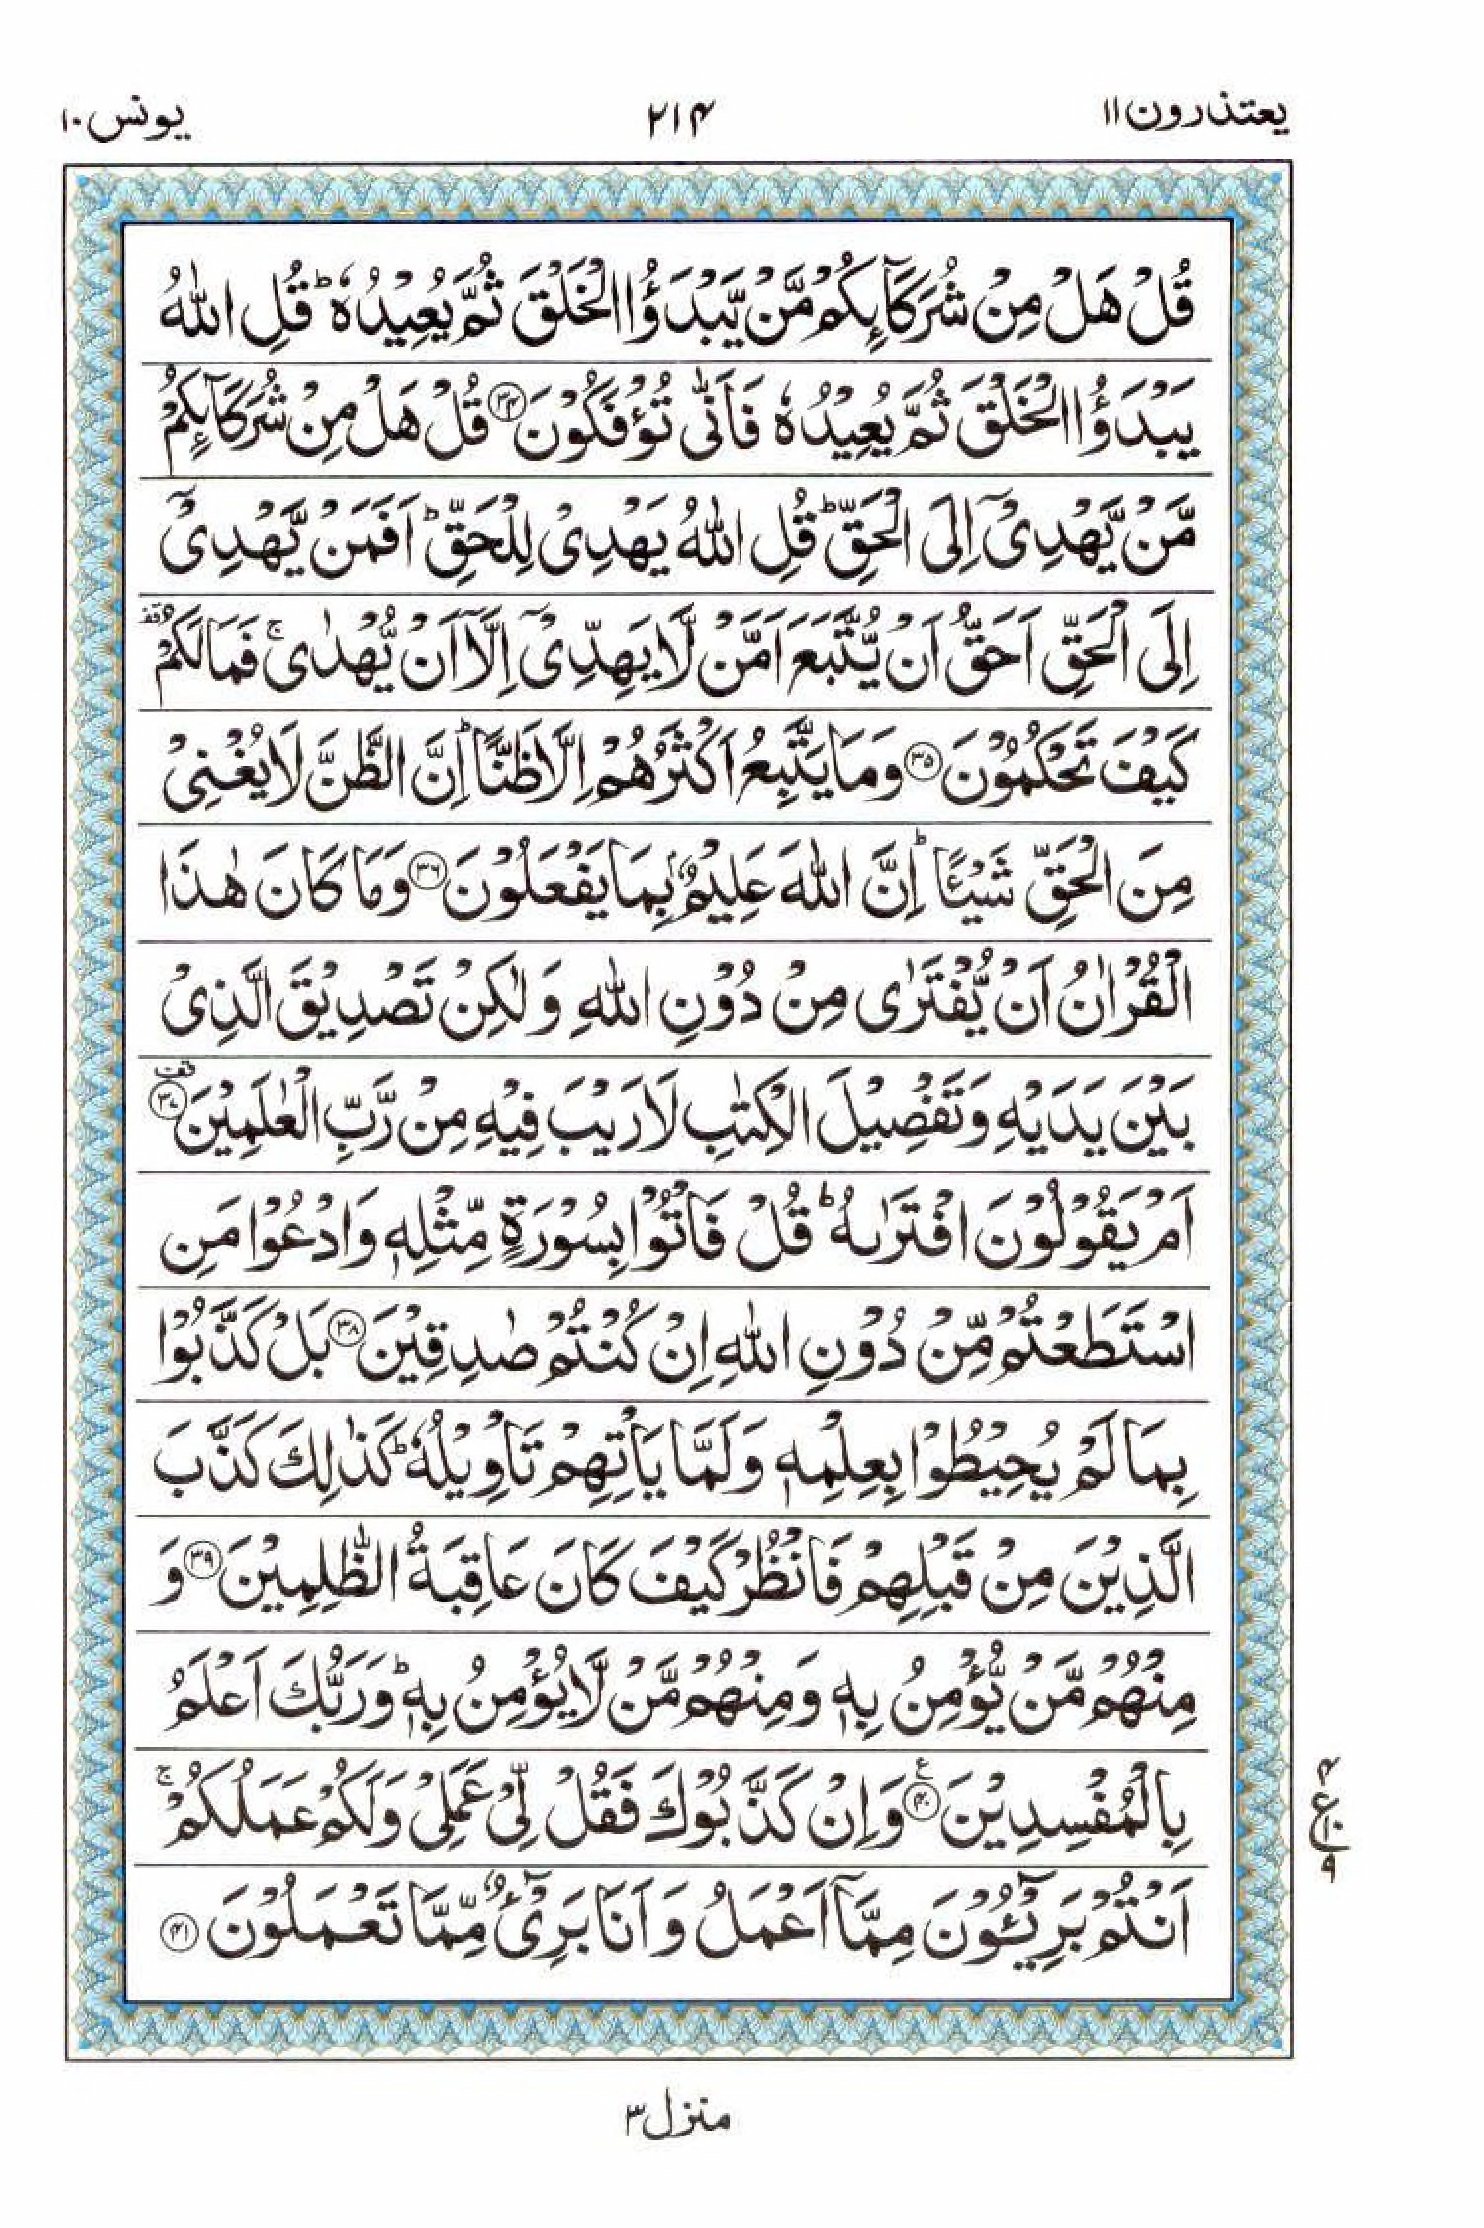 یعتذرون ۱۱
۲۱۴
یونس ۱۰
قُلْ هَلْ مِنْ شُرَكَآئِكُمْ مَّنْ يَّبْدَؤُا الْخَلْقَ ثُمَّ يُعِيْدُهٗ ؕ قُلِ اللّٰهُ
يَبْدَؤُا الْخَلْقَ ثُمَّ يُعِيْدُهٗ فَاَنّٰى تُؤْفَكُوْنَ ﴿۳۴﴾ قُلْ هَلْ مِنْ شُرَكَآئِكُمْ
مَّنْ يَّهْدِيْۤ اِلَى الْحَقِّ ؕ قُلِ اللّٰهُ يَهْدِيْ لِلْحَقِّ ؕ اَفَمَنْ يَّهْدِيْۤ
اِلَى الْحَقِّ اَحَقُّ اَنْ يُّتَّبَعَ اَمَّنْ لَّا يَهِدِّيْۤ اِلَّاۤ اَنْ يُّهْدٰى ۚ فَمَا لَكُمْ قف
كَيْفَ تَحْكُمُوْنَ ﴿۳۵﴾ وَمَا يَتَّبِعُ اَكْثَرُهُمْ اِلَّا ظَنًّا ؕ اِنَّ الظَّنَّ لَا يُغْنِيْ
مِنَ الْحَقِّ شَيْئًا ؕ اِنَّ اللّٰهَ عَلِيْمٌۢ بِمَا يَفْعَلُوْنَ ﴿۳۶﴾ وَمَا كَانَ هٰذَا
الْقُرْاٰنُ اَنْ يُّفْتَرٰى مِنْ دُوْنِ اللّٰهِ وَلٰكِنْ تَصْدِيْقَ الَّذِيْ
بَيْنَ يَدَيْهِ وَتَفْصِيْلَ الْكِتٰبِ لَا رَيْبَ فِيْهِ مِنْ رَّبِّ الْعٰلَمِيْنَ ﴿۳۷﴾ قف
اَمْ يَقُوْلُوْنَ افْتَرٰىهُ ؕ قُلْ فَاْتُوْا بِسُوْرَةٍ مِّثْلِهٖ وَادْعُوْا مَنِ
اسْتَطَعْتُمْ مِّنْ دُوْنِ اللّٰهِ اِنْ كُنْتُمْ صٰدِقِيْنَ ﴿۳۸﴾ بَلْ كَذَّبُوْا
بِمَا لَمْ يُحِيْطُوْا بِعِلْمِهٖ وَلَمَّا يَاْتِهِمْ تَاْوِيْلُهٗ ؕ كَذٰلِكَ كَذَّبَ
الَّذِيْنَ مِنْ قَبْلِهِمْ فَانْظُرْ كَيْفَ كَانَ عَاقِبَةُ الظّٰلِمِيْنَ ﴿۳۹﴾ وَ
مِنْهُمْ مَّنْ يُّؤْمِنُ بِهٖ وَمِنْهُمْ مَّنْ لَّا يُؤْمِنُ بِهٖ ؕ وَرَبُّكَ اَعْلَمُ
بِالْمُفْسِدِيْنَ ﴿۴۰﴾ ع وَاِنْ كَذَّبُوْكَ فَقُلْ لِّيْ عَمَلِيْ وَلَكُمْ عَمَلُكُمْ ۚ
اَنْتُمْ بَرِيْٓـُٔوْنَ مِمَّاۤ اَعْمَلُ وَاَنَا بَرِيْٓءٌ مِّمَّا تَعْمَلُوْنَ ﴿۴۱﴾
۴
ع
۱۰
۹
منزل ۳